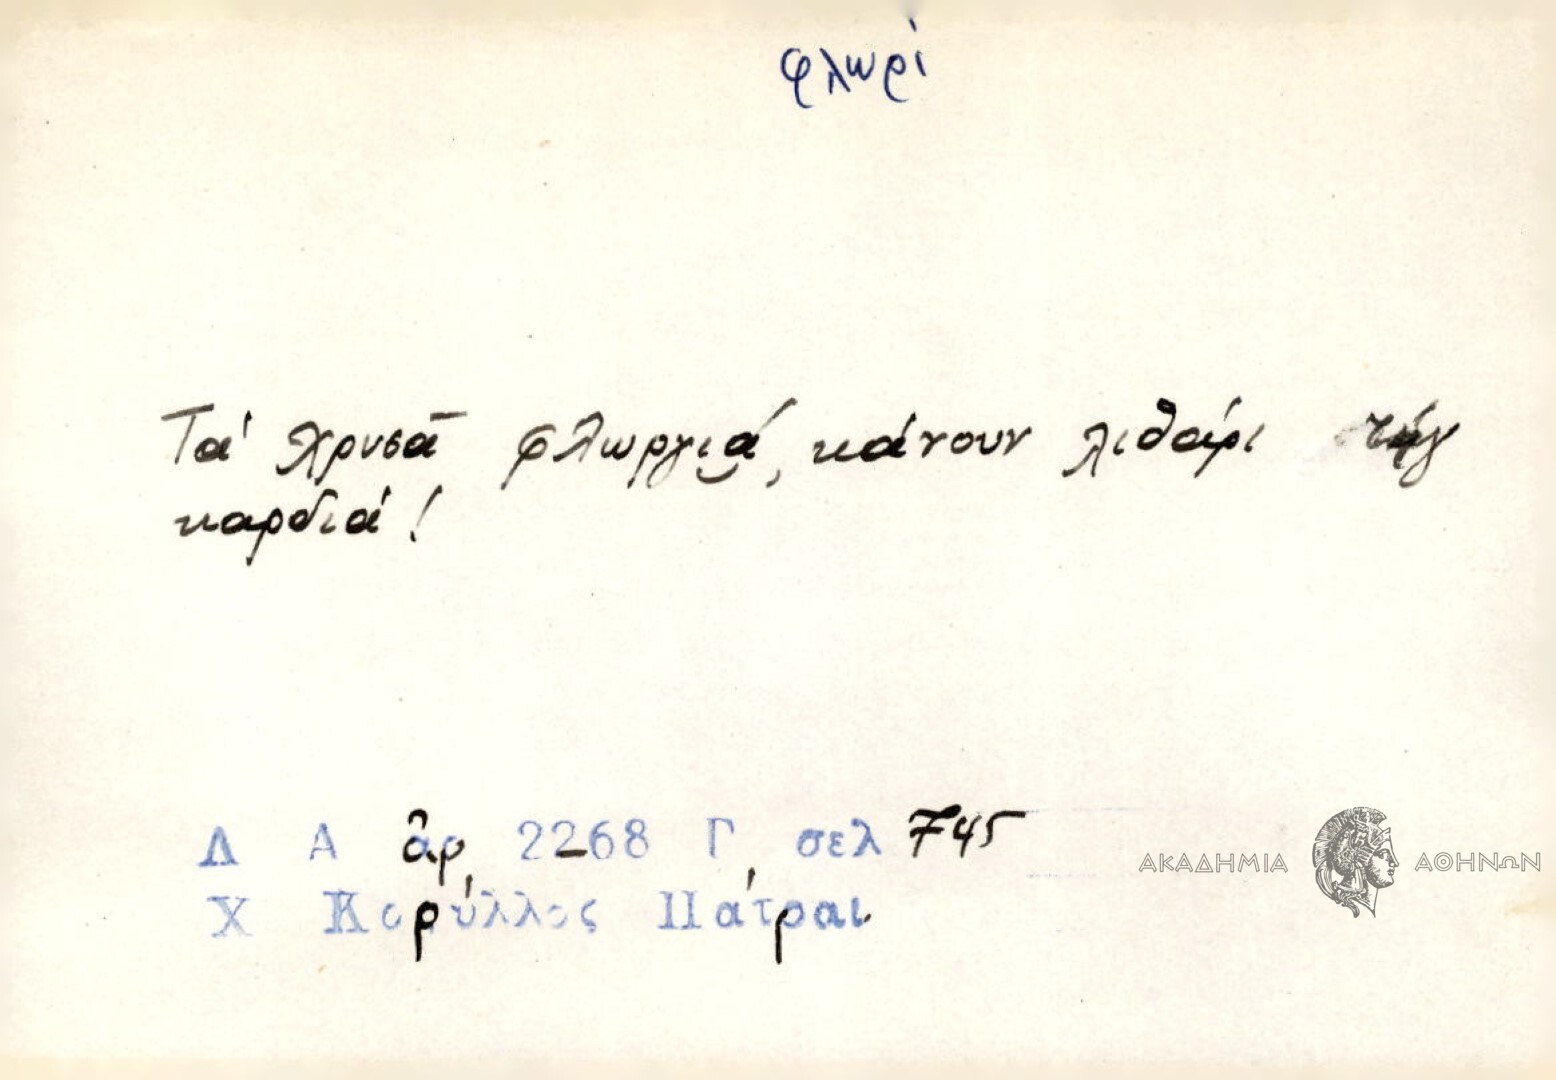 φλωρί
Τά χρυσᾶ φλωργιά, κάνουν λιθάρι τήγ
καρδιά!
Λ Α ἀρ. 2268 Γ, σελ 745
Χ Κορύλλος Πάτραι.
ΑΚΑΔΗΜΙΑ ΑΘΗΝΩΝ